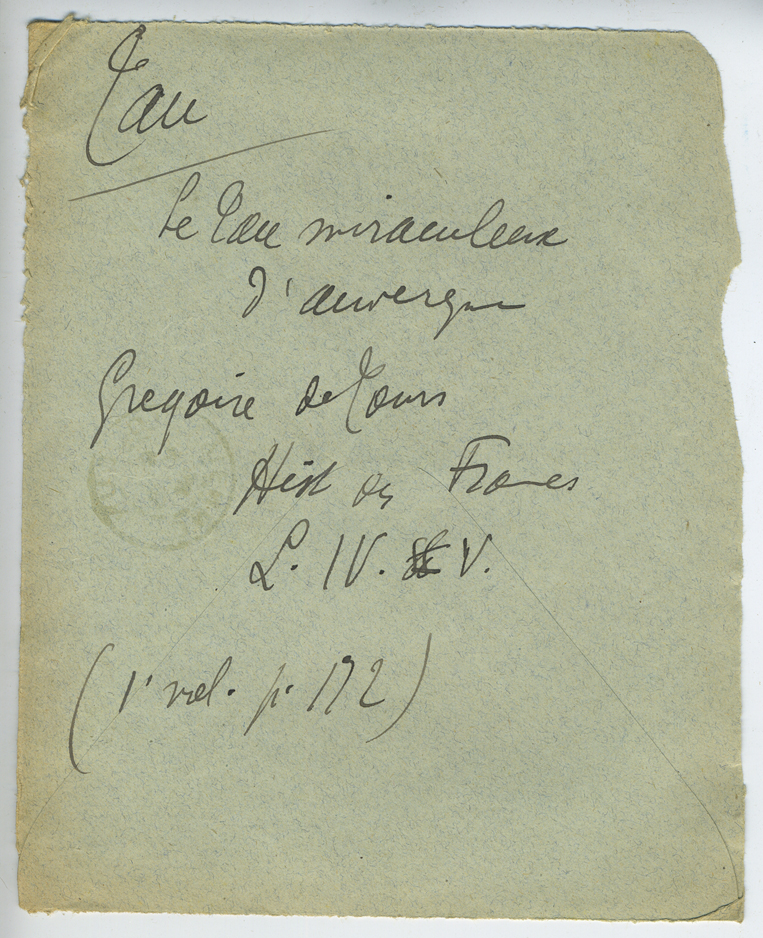 Tau
Le Tau miraculeux
d'auvergne
Gregoire de Tours
Hist des Francs
L. IV. V.
(1r vol. p. 172)